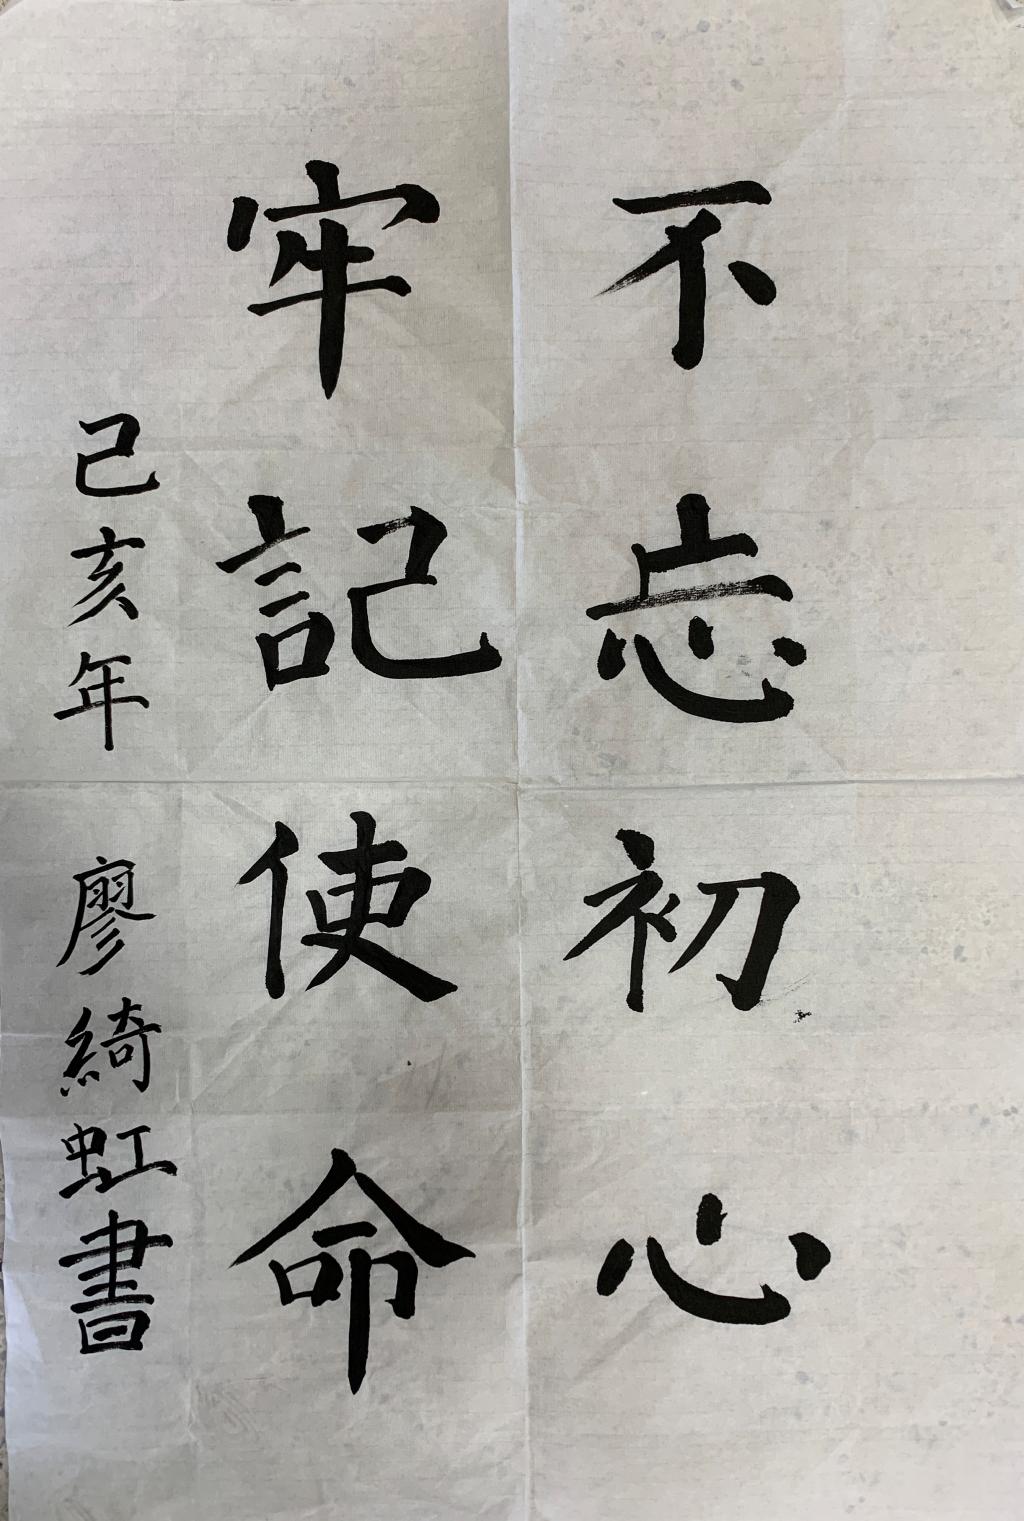 不忘初心
牢記使命
己亥年 廖綺虹書